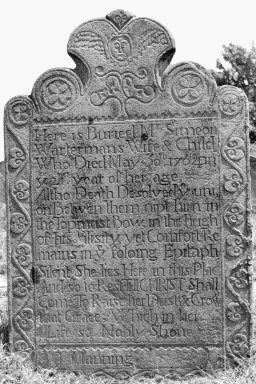 Here is Buried Simeon
Watermans Wife & Child
Who Died May 30 1764 in
year of her age
Tho Death Desolved
on Betwen them nipt him in
the topmust bow in the heigh
of his Yet Comfort Re
mains in y foloing Epitaph
Silent She lies Here in this Plac
and so to Rest till CHRIST Shall
Come To Raise her Dust & Crow
that Grace Which in her
Life so Nobly Shone
Manning